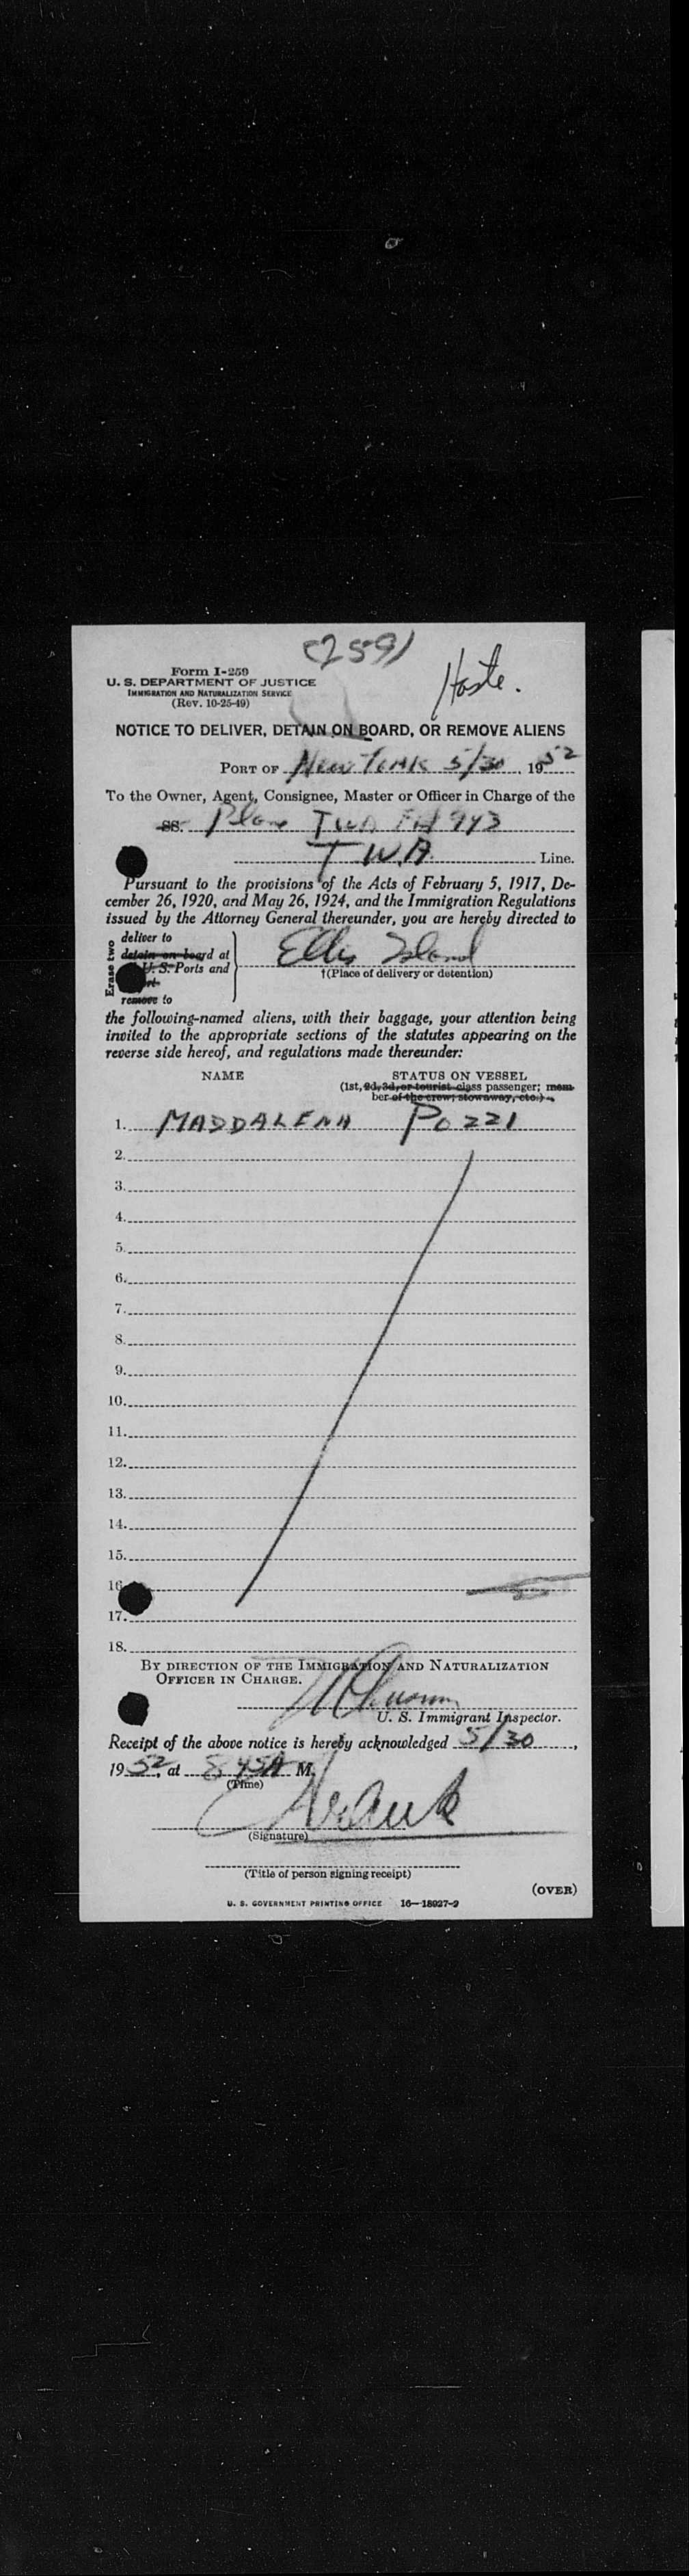 (259)
Haste.
Form I-259
U. S. DEPARTMENT OF JUSTICE
IMMIGRATION AND NATURALIZATION SERVICE
(Rev. 10-25-49)
NOTICE TO DELIVER, DETAIN ON BOARD, OR REMOVE ALIENS
PORT OF New York 5/30, 1952
To the Owner, Agent, Consignee, Master or Officer in Charge of the
SS. Plane TWA 943
TWA. Line.
Pursuant to the provisions of the Acts of February 5, 1917, De-
cember 26, 1920, and May 26, 1924, and the Immigration Regulations
issued by the Attorney General thereunder, you are hereby directed to
Erase two
deliver to
detain on board at
U. S. Ports and
remove to
Ellis Island
†(Place of delivery or detention)
the following-named aliens, with their baggage, your attention being
invited to the appropriate sections of the statutes appearing on the
reverse side hereof, and regulations made thereunder:
NAME STATUS ON VESSEL
(1st, 2d, 3d, or tourist class passenger; mem-
ber of the crew; stowaway, etc.)
1. MADDALENA POZZI
2.
3.
4.
5.
6.
7.
8.
9.
10.
11.
12.
13.
14.
15.
16.
17.
18.
BY DIRECTION OF THE IMMIGRATION AND NATURALIZATION
OFFICER IN CHARGE.
U. S. Immigrant Inspector.
Receipt of the above notice is hereby acknowledged 5/30,
1952, at 845A M.
(Time)
(Signature)
(Title of person signing receipt)
(OVER)
U. S. GOVERNMENT PRINTING OFFICE 16—18027-2